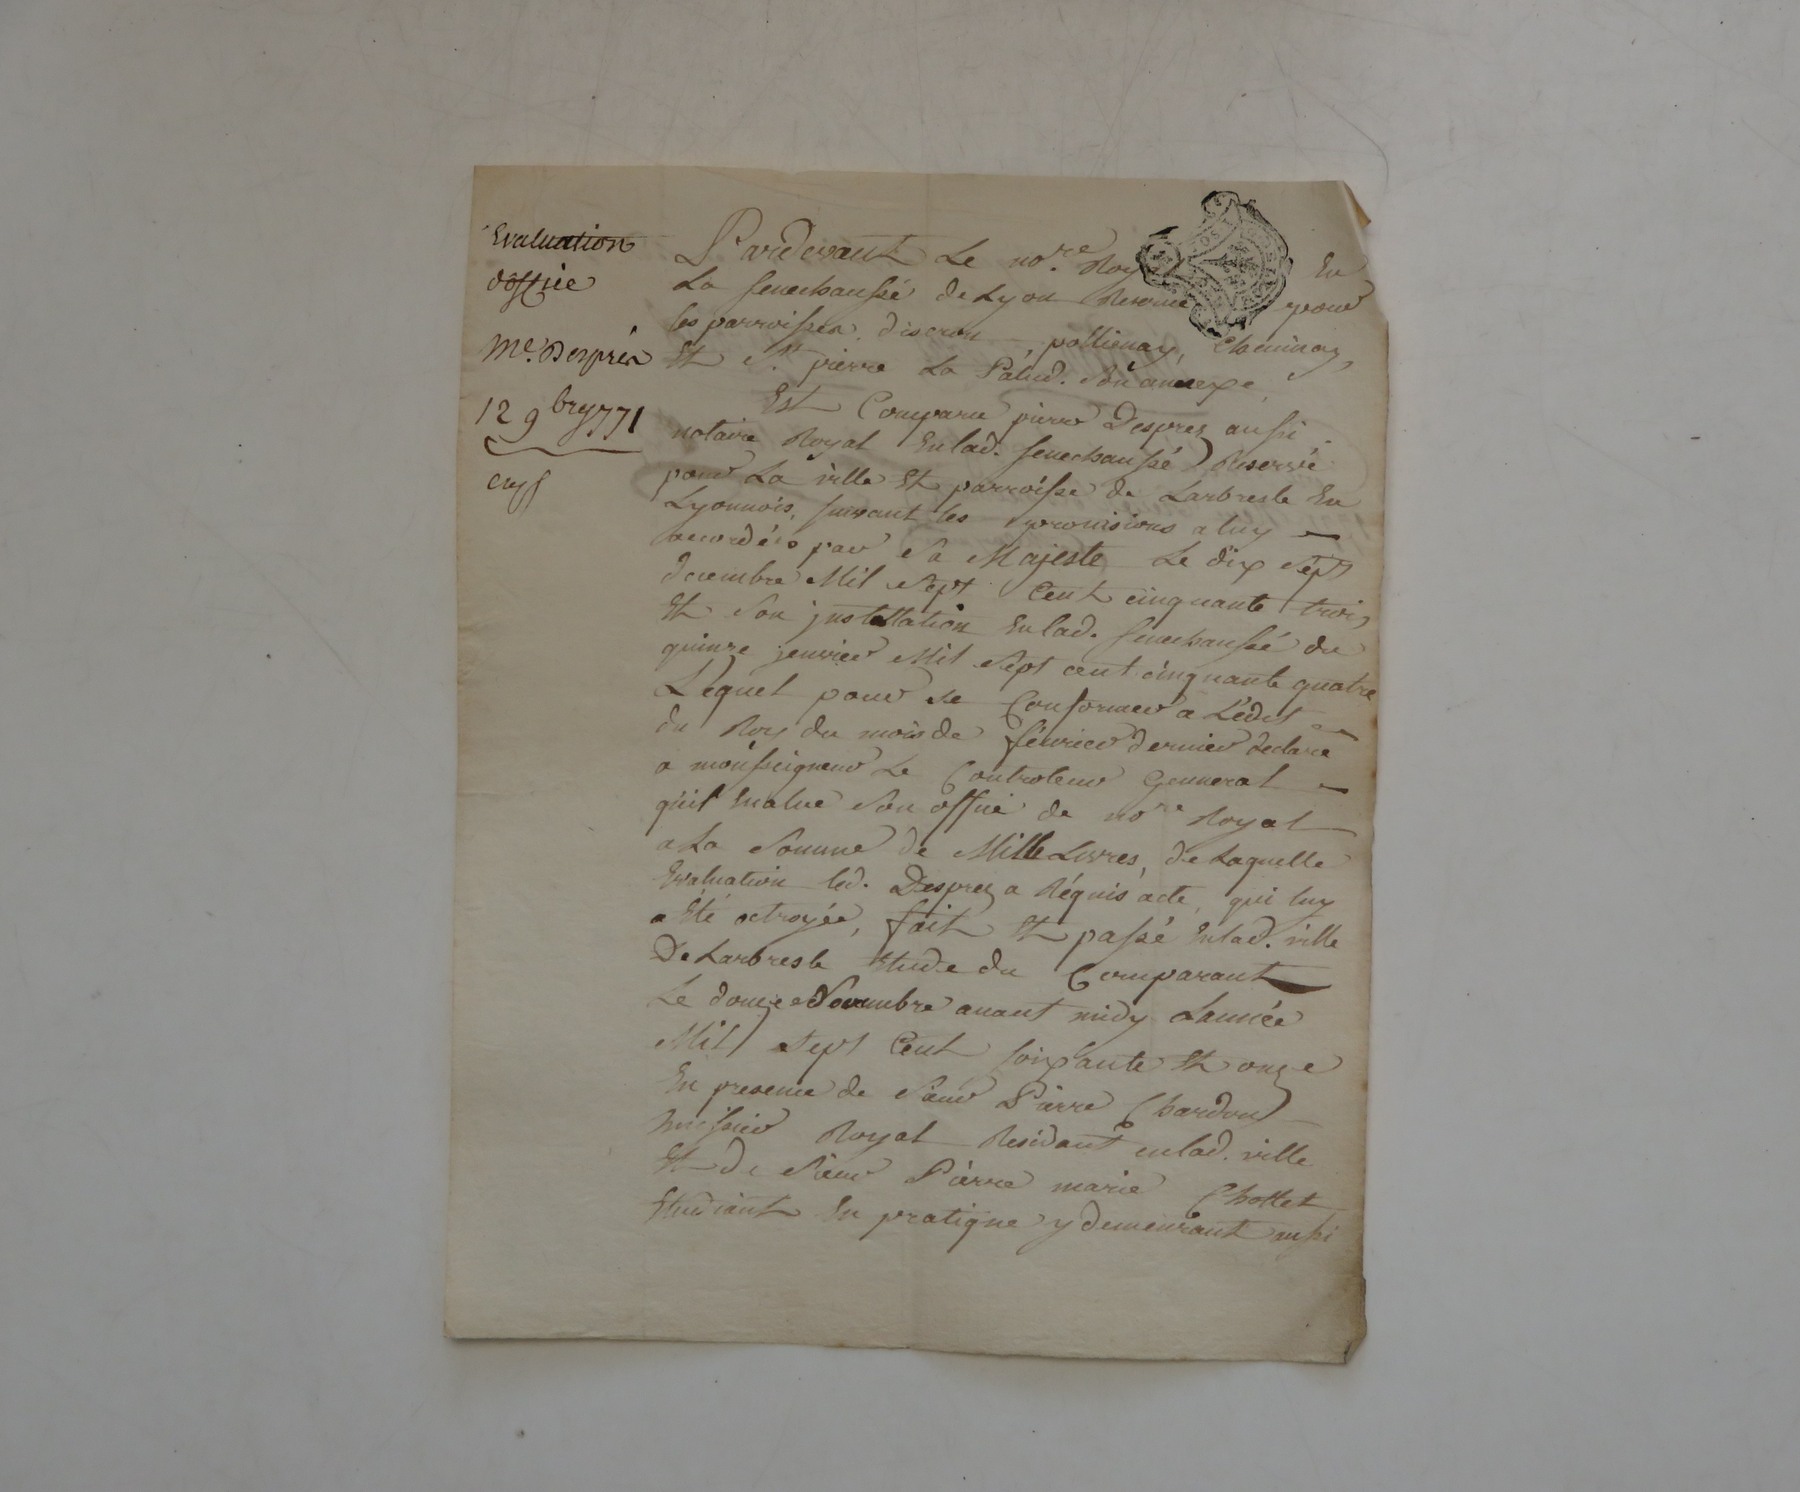 Evaluation
d'office
Me. Desprès
12 9bre 1771
Pardevant Le nore. Roy En
La senechaussé de Lyon Reservé pour
les parroisses, , pollienay, Cheuinay,
Et St. pierre La Palud. Son annexe,
Est Comparu pierre Desprez aussi
notaire Royal Enlad. senechaussé Reservé
pour La ville Et parroisse de Larbresle En
Lyonnois, suivant les provisions a luy
accordées par Sa Majesté Le dix Sept
decembre Mil Sept Cent cinquante trois
Et Son jnstallation Enlad. senechaussé du
quinze jenvier Mil Sept cent cinquante quatre
Lequel pour se Conformer a L'édit
du Roy du mois de février dernier declare
a monseigneur Le Controleur General
qu'il Evalue Son office de nore Royal
a La Somme de Mille Livres, de Laquelle
Evaluation led. Desprez a Réquis acte, qui luy
a Eté octroyée, fait Et passé Enlad. ville
De Larbresle Etude du Comparant
Le douze Novembre avant midy Lannée
Mil Sept Cent soixante Et onze
En presence de Sieur Pierre Chardon
huissier Royal Residant enlad. ville
Et de Sieur Pierre marie Chollet
Etudiant En pratique y demeurant aussi